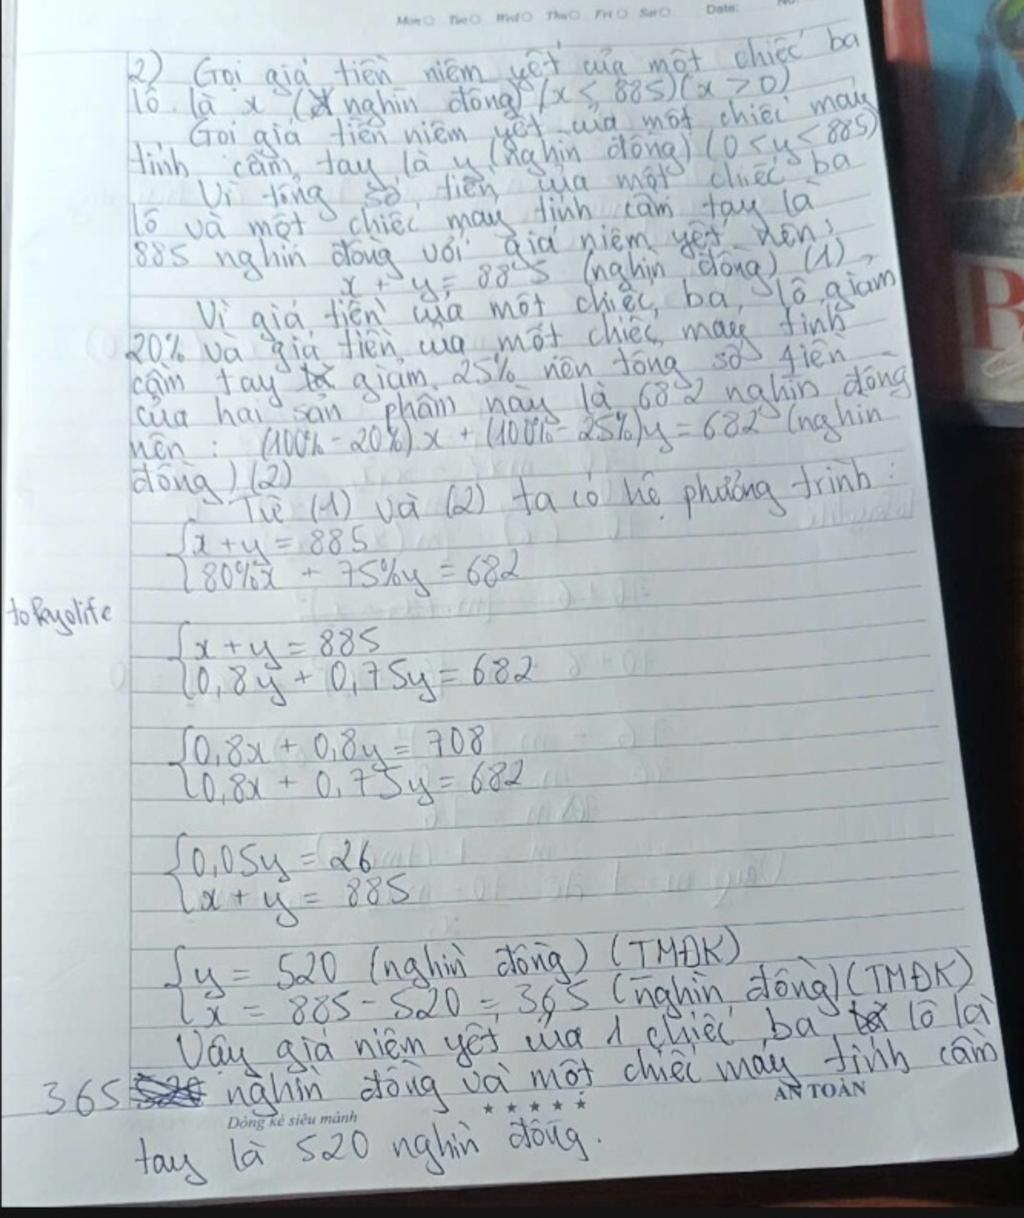 Mon Tue Wed Thu Fri Sat Date: No.
2) Gọi giá tiền niêm yết của một chiếc ba
lô là x (nghìn đồng) (x < 885) (x > 0)
Gọi giá tiền niêm yết của một chiếc máy
tính cầm tay là y (nghìn đồng) (0 < y < 885)
Vì tổng số tiền của một chiếc ba
lô và một chiếc máy tính cầm tay là
885 nghìn đồng với giá niêm yết nên:
x + y = 885 (nghìn đồng) (1)
Vì giá tiền của một chiếc ba lô giảm
20% và giá tiền của một chiếc máy tính
cầm tay giảm 25% nên tổng số tiền
của hai sản phẩm này là 682 nghìn đồng
nên : (100% - 20%) x + (100% - 25%) y = 682 (nghìn
đồng) (2)
Từ (1) và (2) ta có hệ phương trình :
{x + y = 885
{80%x + 75%y = 682
tokyolife
{x + y = 885
{0,8y + 0,75y = 682
{0,8x + 0,8y = 708
{0,8x + 0,75y = 682
{0,05y = 26
{x + y = 885
{y = 520 (nghìn đồng) (TMĐK)
{x = 885 - 520 = 365 (nghìn đồng) (TMĐK)
Vậy giá niêm yết của 1 chiếc ba lô là
365 nghìn đồng và một chiếc máy tính cầm
Dòng kẻ siêu mảnh ★ ★ ★ ★ ★ AN TOÀN
tay là 520 nghìn đồng.
B